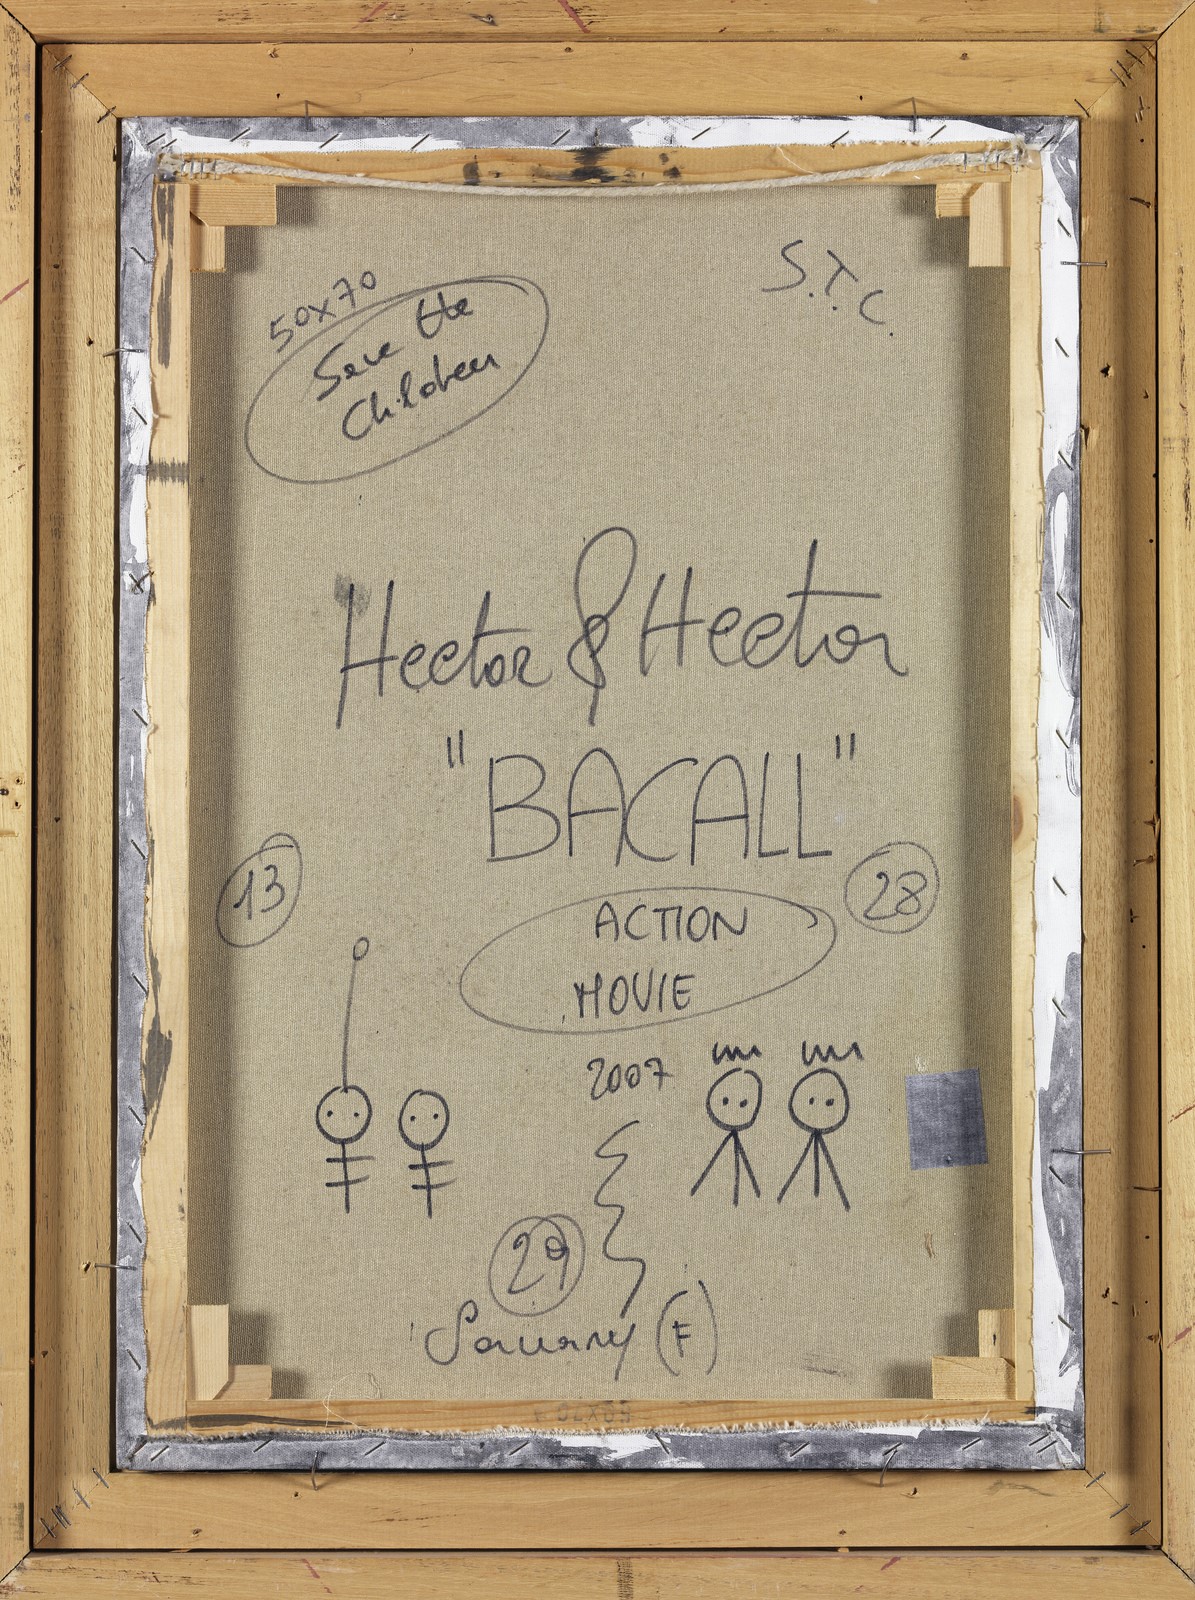 50x70
S.T.C.
Save the
Children
Hector & Hector
"BACALL"
13
28
ACTION
MOVIE
2007
29
(F)